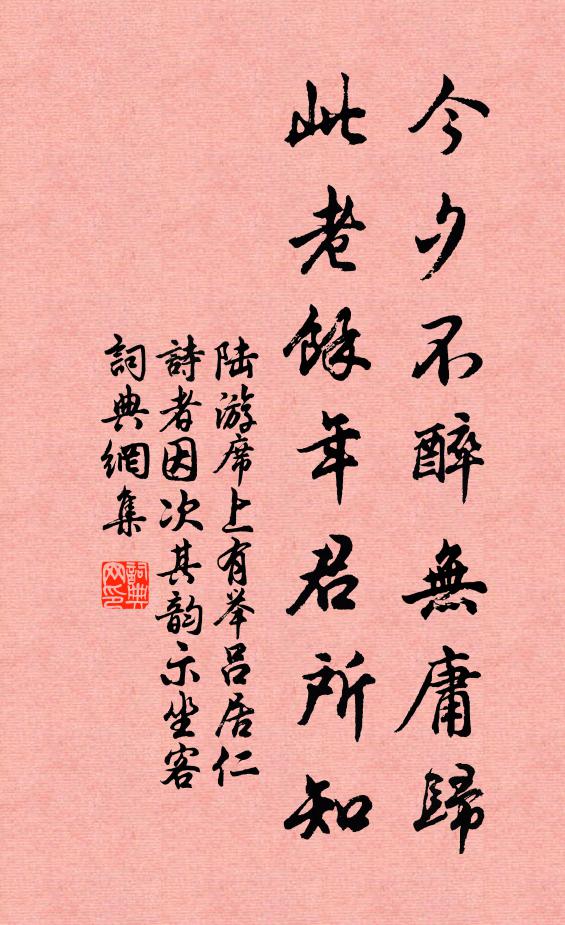 今夕不醉無庸歸
此老餘年君所知
陆游席上有举吕居仁
詩者因次其韵示坐客
詞典網集
詞典网印